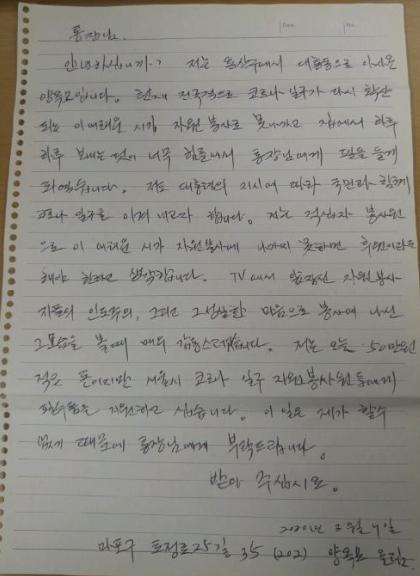 통장님.
안녕하십니까? 저는 용산구에서 대흥동으로 이사온
양옥모입니다. 현재 전국적으로 코로나 일구가 다시 확산
되는 이 어려운 시기 자원봉사로 못나가고 집에서 하루
하루 보내는 편이 너무 힘들어서 통장님에게 편을 들게
되었습니다. 저도 대통령의 지시에 따라 국민과 함께
코로나 일구를 이겨 내려고 합니다. 저는 적십자 봉사원
으로 이 어려운 시기 자원봉사에 나가지 못하면 후원이라도
해야 한다고 생각합니다. TV에서 일장선 자원봉사
자들의 인도주의, 그리고 그 성실한 마음으로 봉사에 나선
그 모습을 볼때 매우 감동스럽습니다. 저는 오늘 50만원
적은 돈이지만 서울시 코로나 일구 자원봉사원들에게
지원하고 싶습니다. 이 일은 제가 할수
없기 때문에 통장님에게 부탁드립니다.
받아 주십시요.
마포구 토정로25길 35 (202) 양옥모 올림